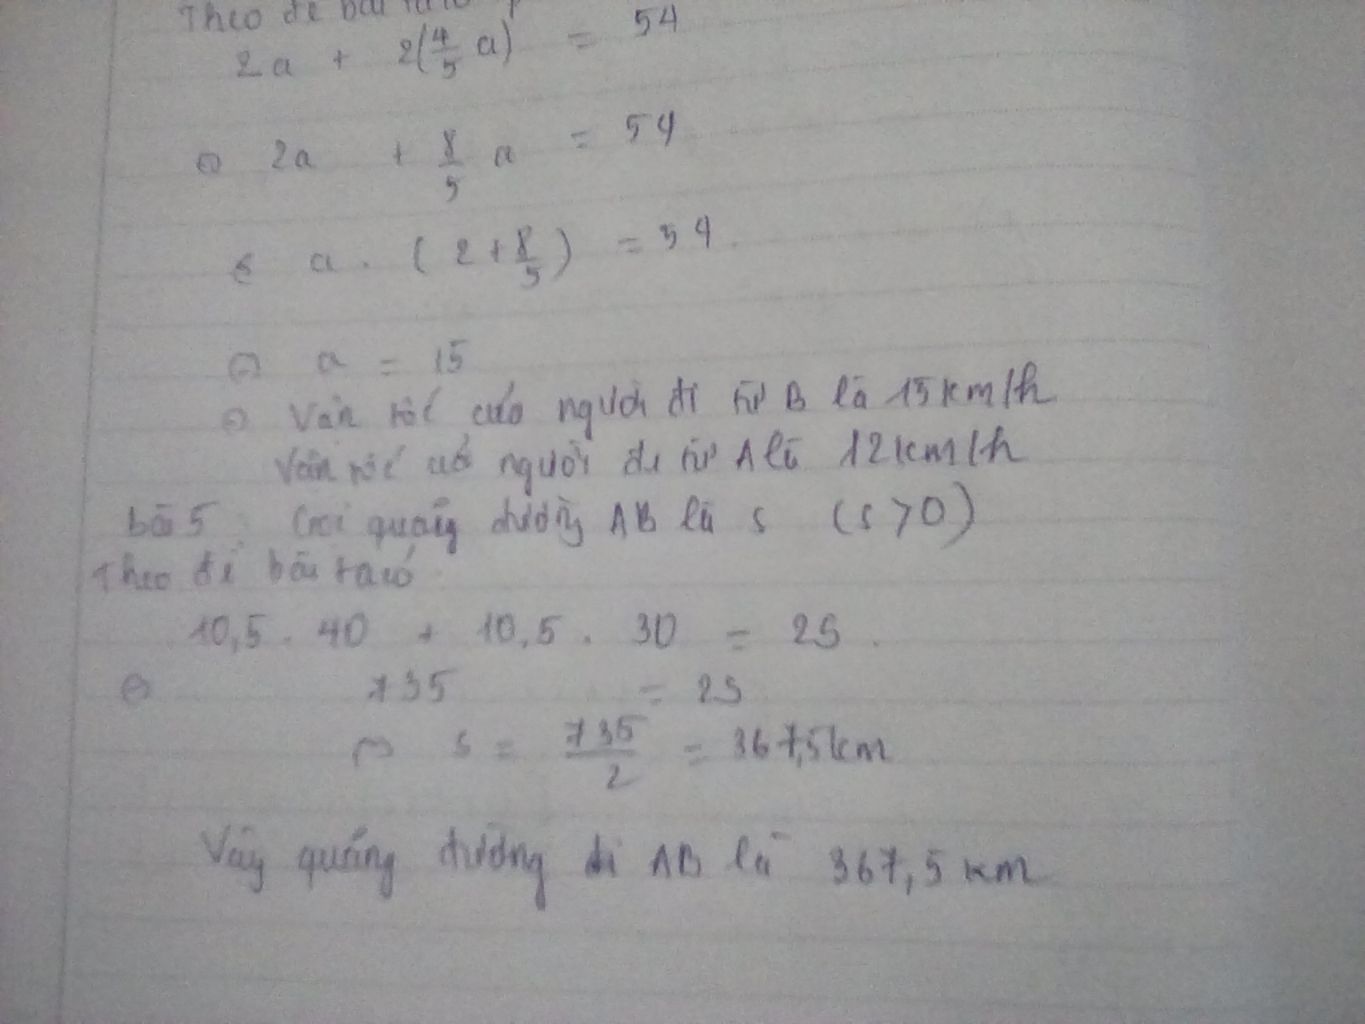 Theo đề bài ta có
2a + 2(4/5 a) = 54
⇔ 2a + 8/5 a = 54
⇔ a . (2 + 8/5) = 54
⇔ a = 15
⇔ Vận tốc của người đi từ B là 15km/h
Vận tốc của người đi từ A là 12km/h
bài 5 Gọi quãng đường AB là s (s>0)
Theo đề bài ta có
10,5 . 40 + 10,5 . 30 = 2S .
⇔ 735 = 2S
⇔ s = 735/2 = 367,5km
Vậy quãng đường đi AB là 367,5 km